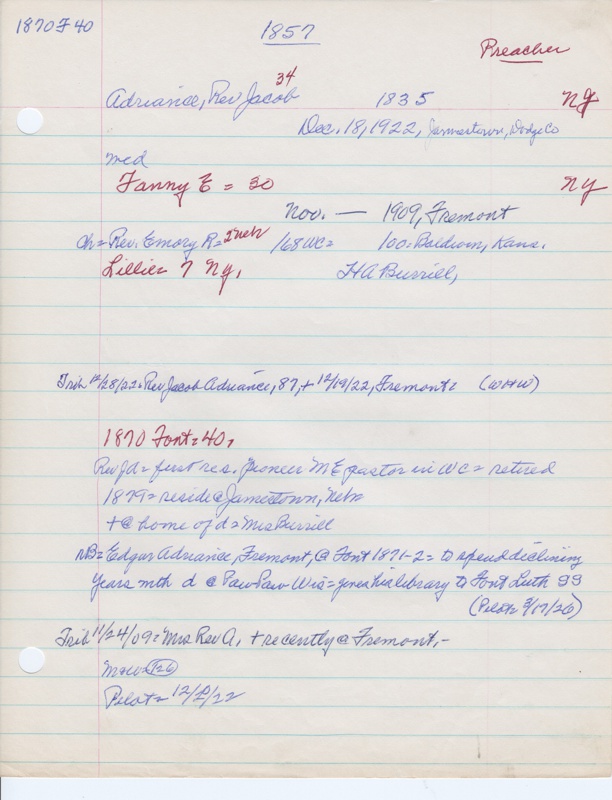 1870 F 40
1857
Preacher
34
Adriance, Rev Jacob 1835 NY
Dec. 18, 1922, Jamestown, Dodge Co
med
Fanny E = 30 NY
Nov. — 1909, Fremont
ch = Rev. Emory R = 2 Neb /68 WC = 100 = Baldwin, Kans.
Lillie = 7 NY, H A Burrill,
Trib 12/28/22 = Rev Jacob Adriance, 87, + 12/19/22, Fremont = (WHW)
1870 Font = 40,
Rev Jd = first res. Pioneer ME pastor in WC = retired
1879 = reside @ Jamestown, Nebr
+ @ home of d = Mrs Burrill
NB = Edgar Adriance, Fremont, @ Font 1871-2 = to spend declining
years with d @ Paw Paw Wis = gives his library to Font Luth SS
(Pilot 9/17/26)
Trib 11/24/09 = Mrs Rev A, + recently @ Fremont, -
126
Pilot = 12/ /22